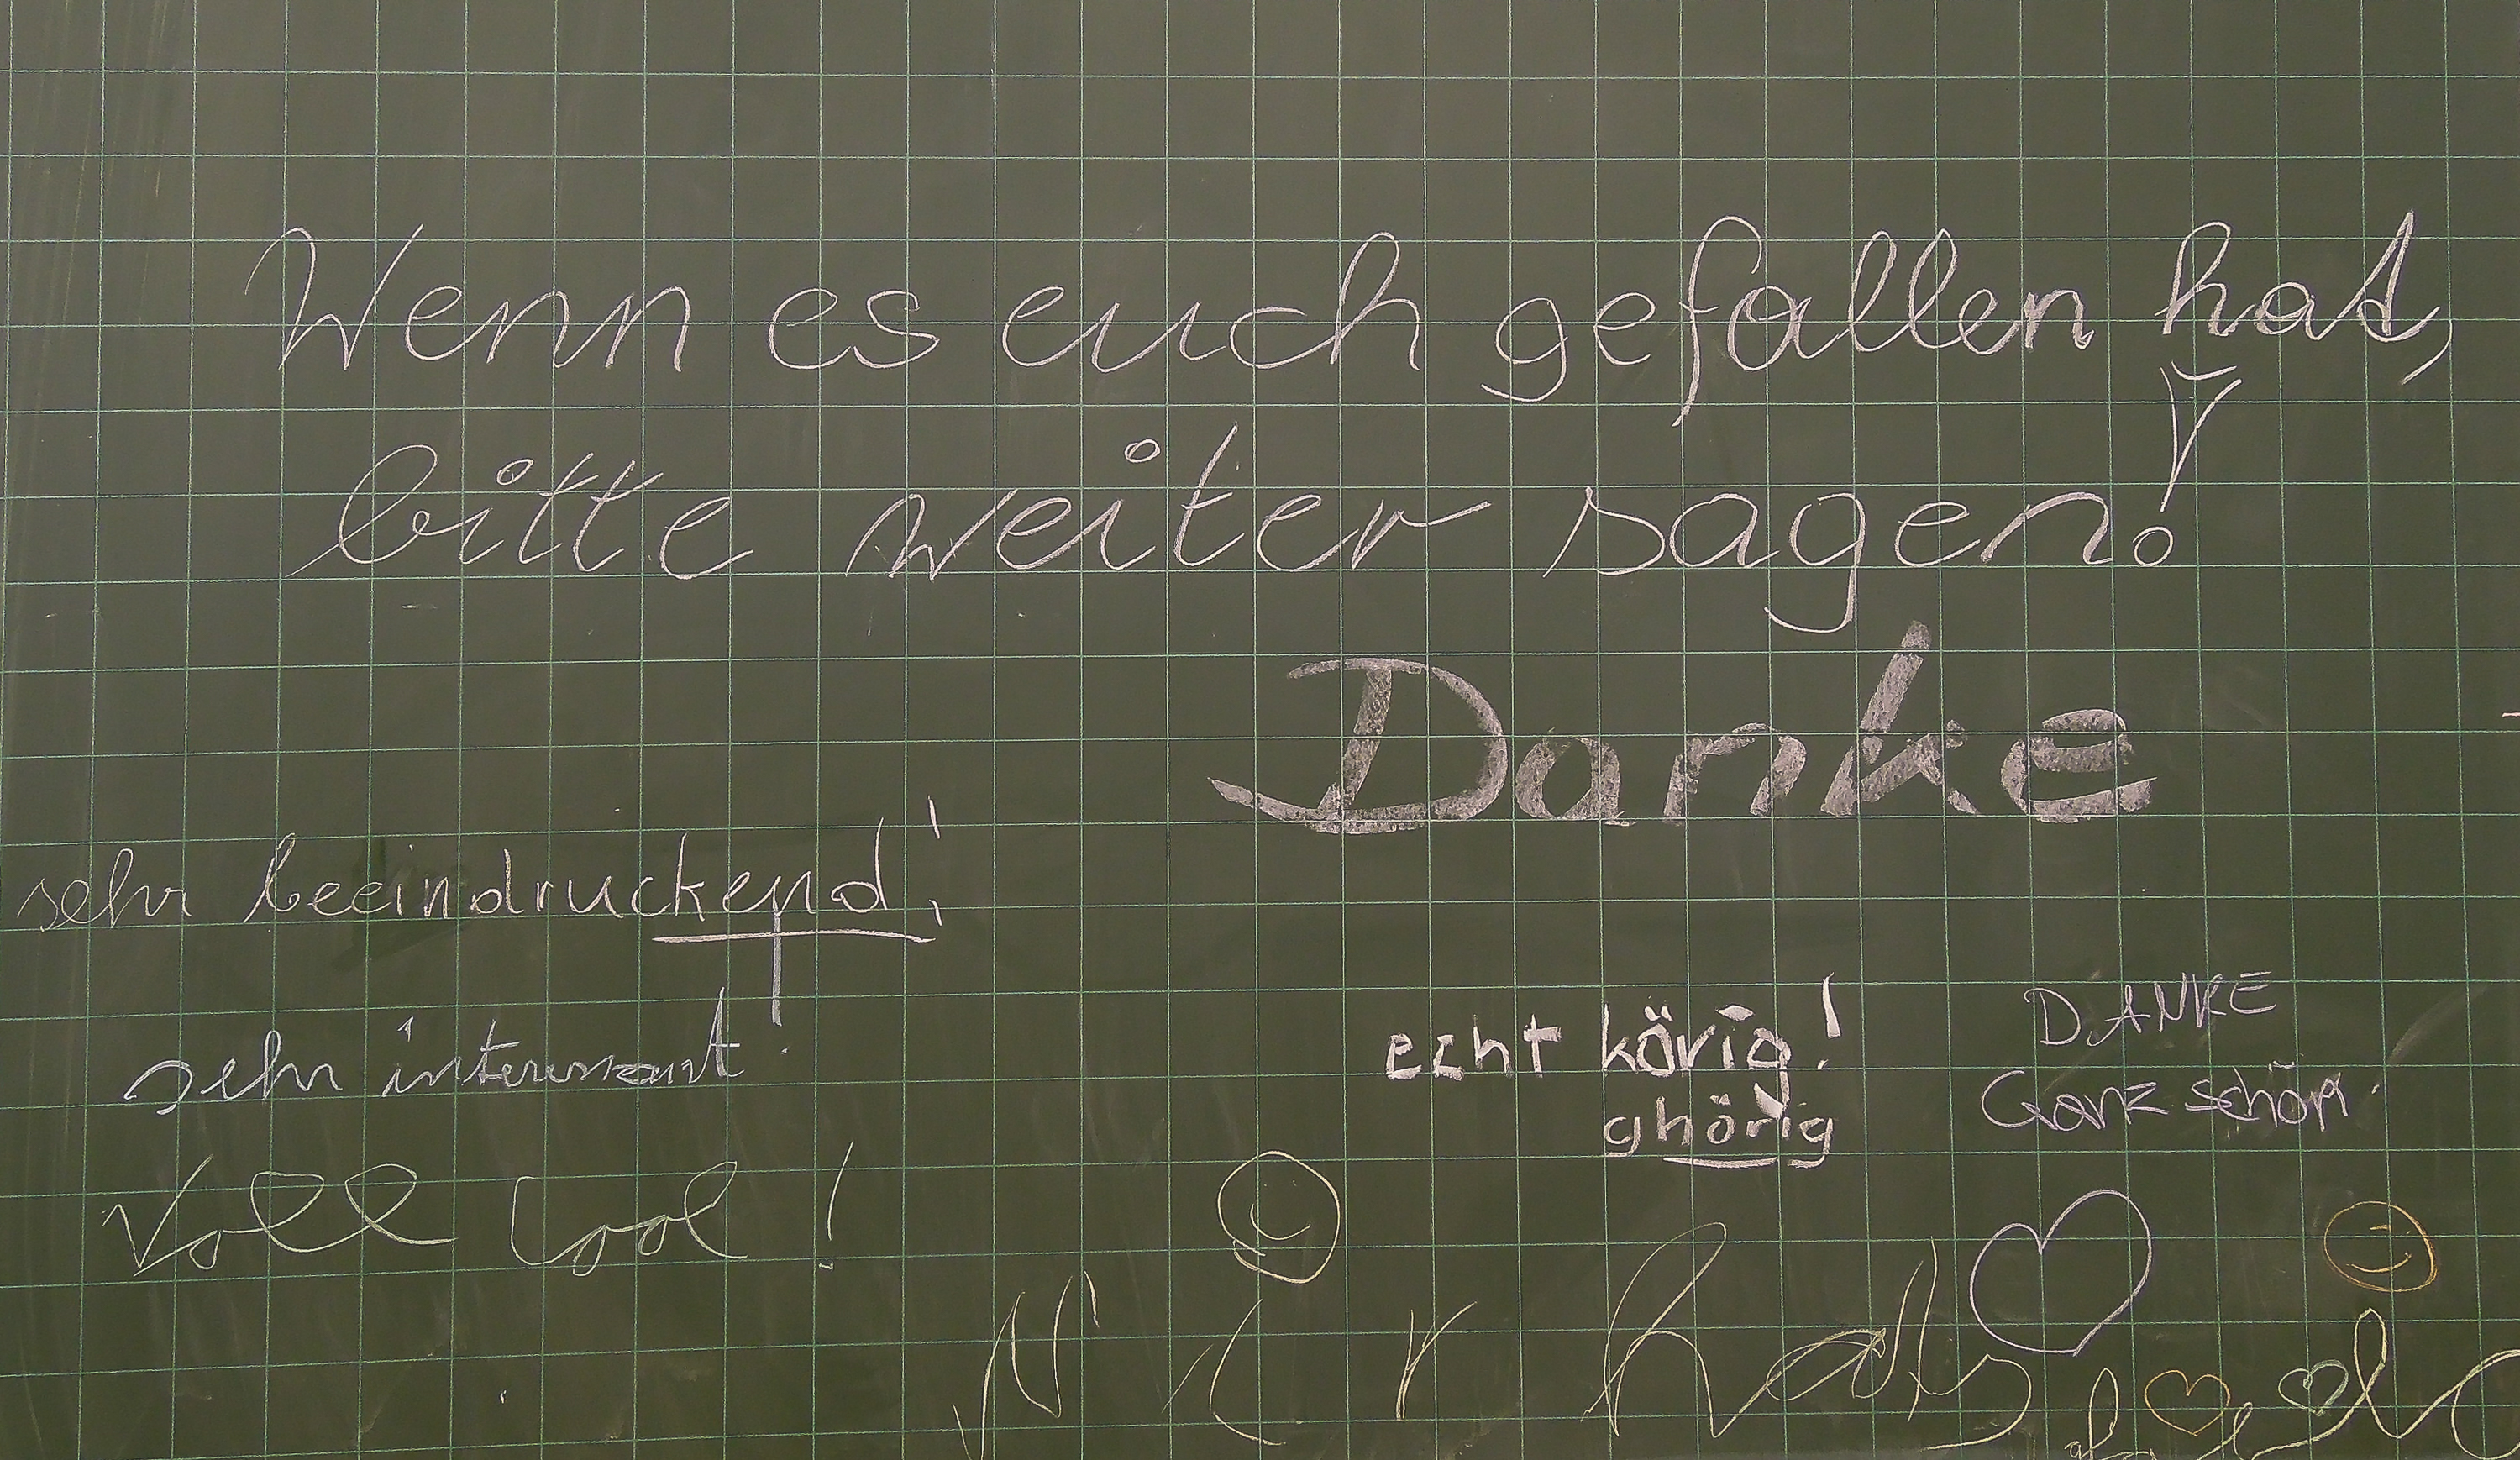 Wenn es euch gefallen hat,
bitte weiter sagen!
Danke
sehr beeindruckend!
sehr interessant!
echt körig!
ghörig
DANKE
Ganz schön.
Voll cool!
Mir hats